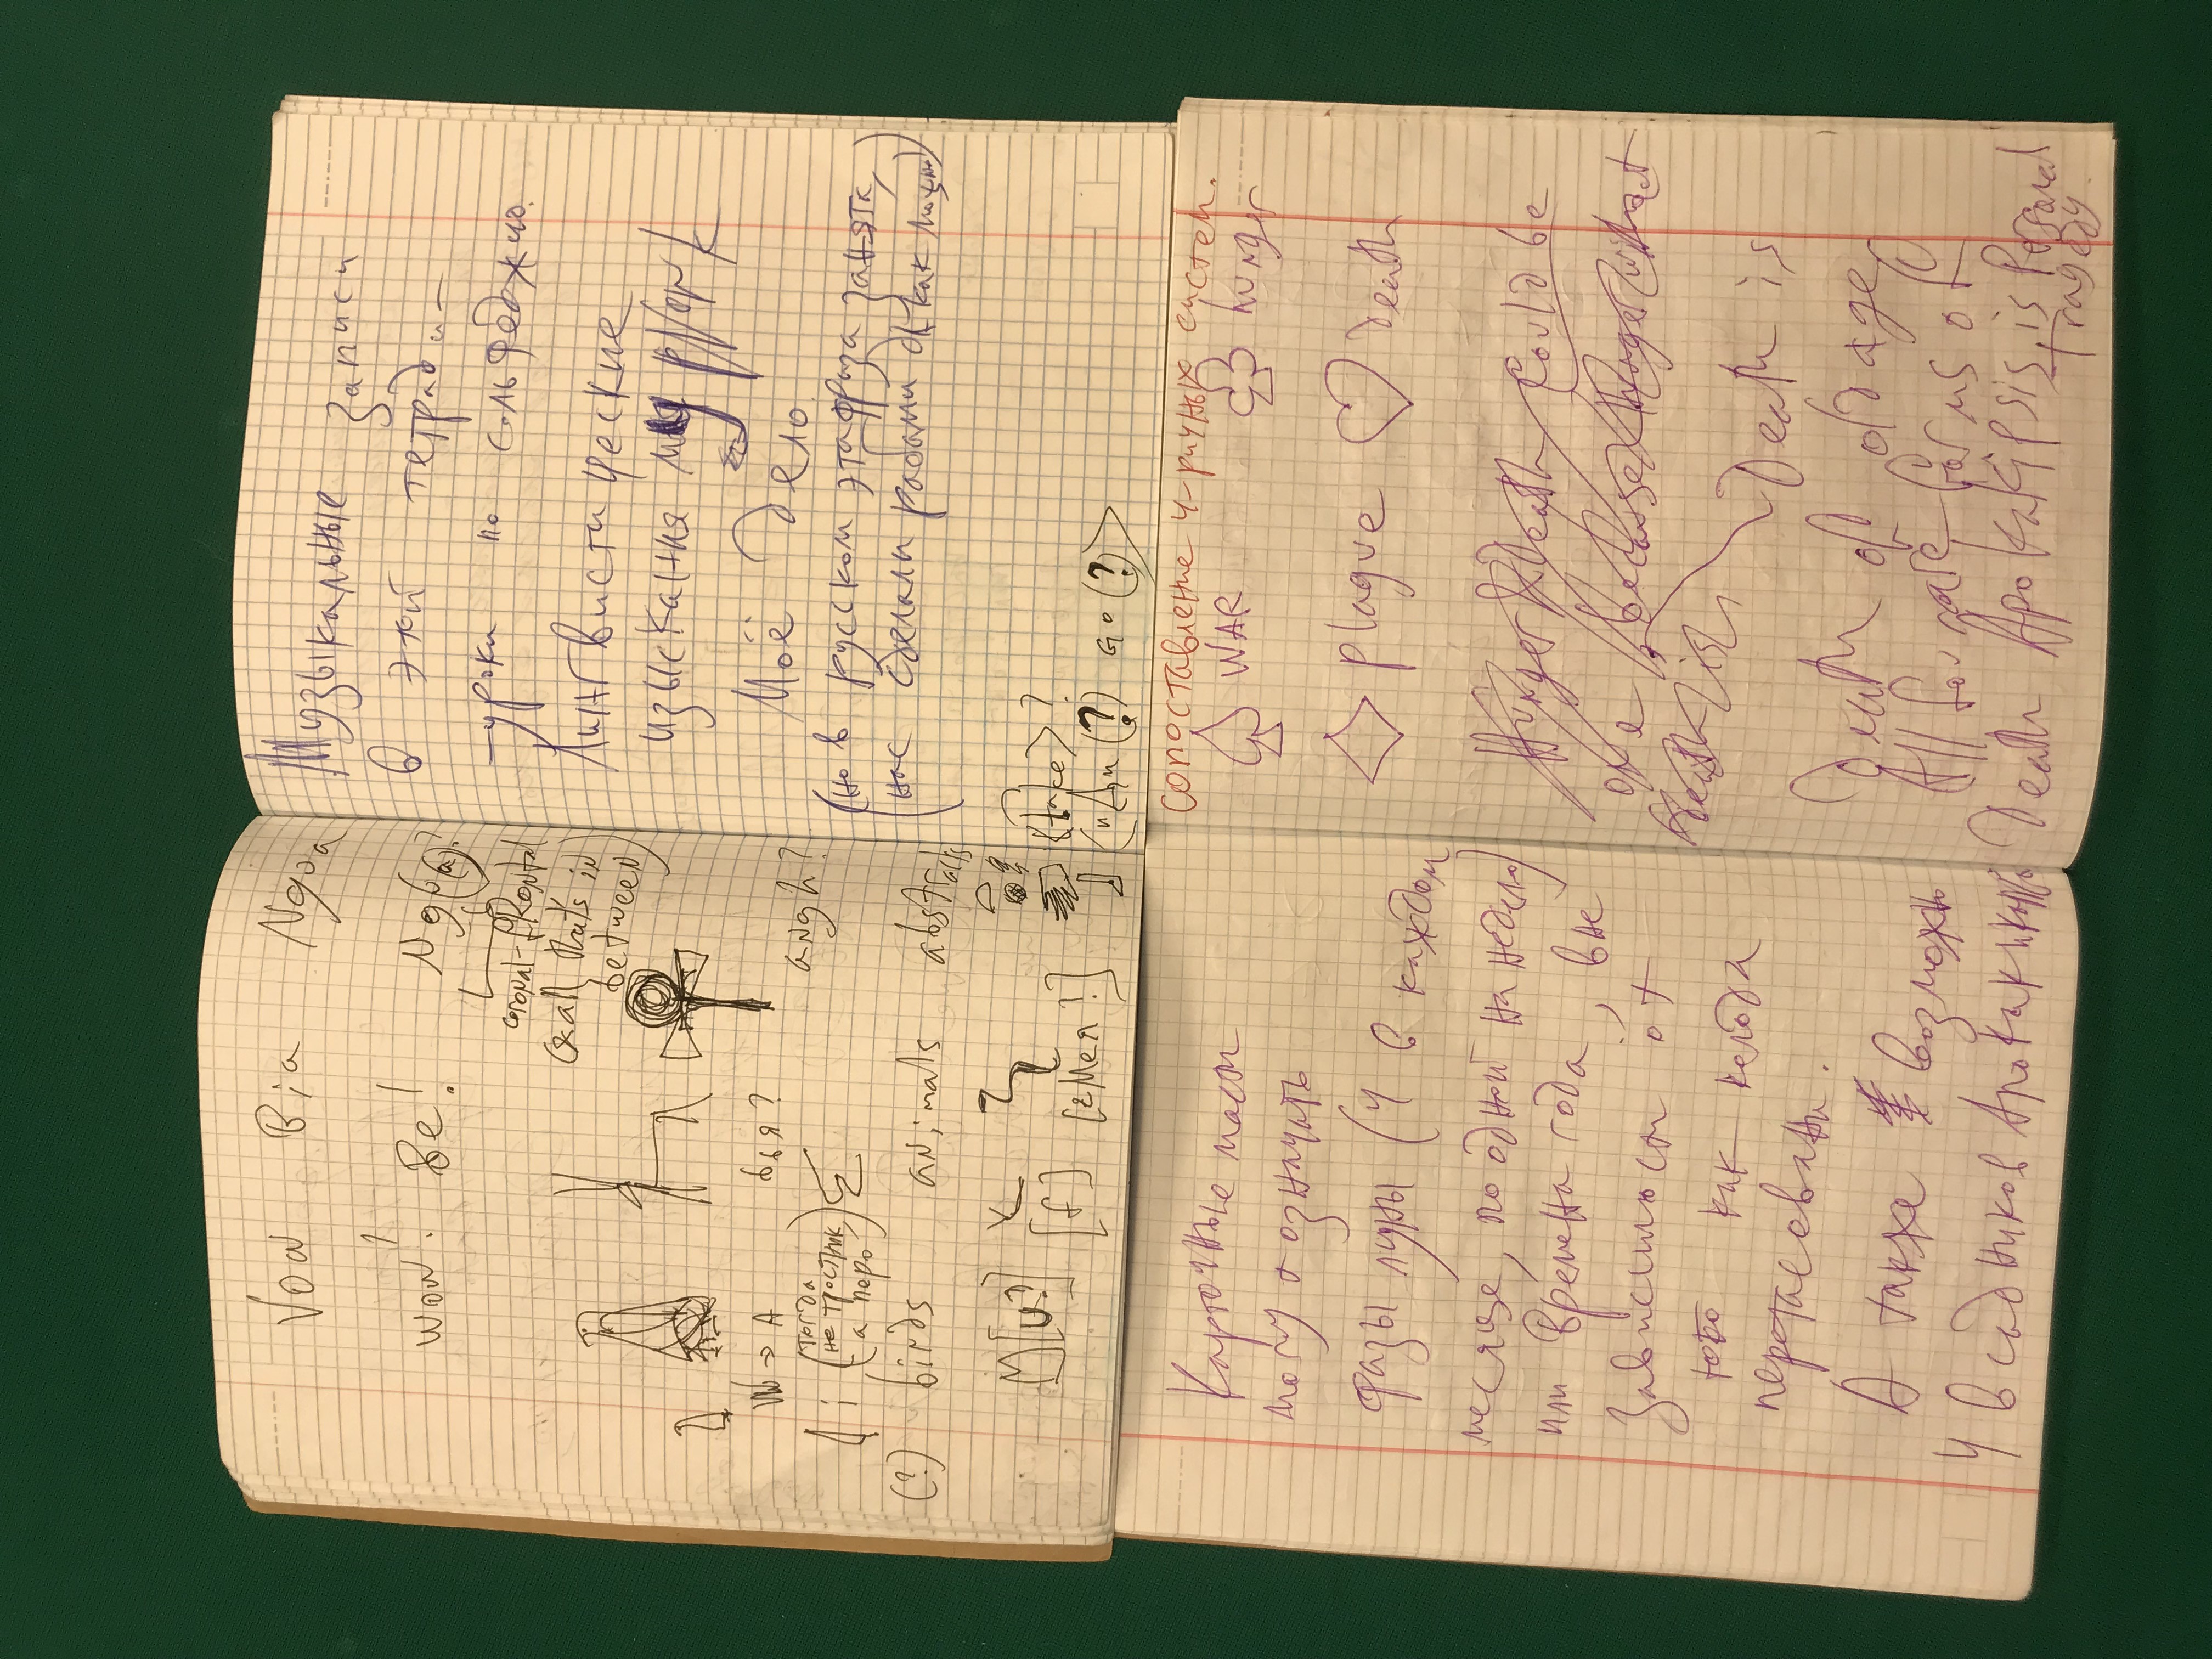 Vow Bia Ngoa
wow! Be! Ng(a)?
coronal-fRontal
(& all that's in
between)
W → A
бья?
angh?
i (тогда
не тростник,
а перо)
(?) birds animals abstracts
[u?]
[f]
[змея?]
<take>?
(?) GO (?)>
Музыкальные записи
в этой тетради —
— уроки по сольфеджио.
Лингвистические
изыскания my work
Моё дело.
(но в русском эта фраза занята,
нас сделали рабами
Карточные масти
могут означать
фазы луны (4 в каждом
месяце, по одной на неделю)
или времена года, вне
зависимости от
того как колода
перетасована.
А также возможно
4 всадников
сопоставление 4-ричных систем.
♠ WAR ♣ hunger
♢ plague ♡ death
Hunger & Death could be
one because Hunger without
death is
Death is
Death of old age
All four are forms of
Death Apokakipsis is Personal
tragedy.